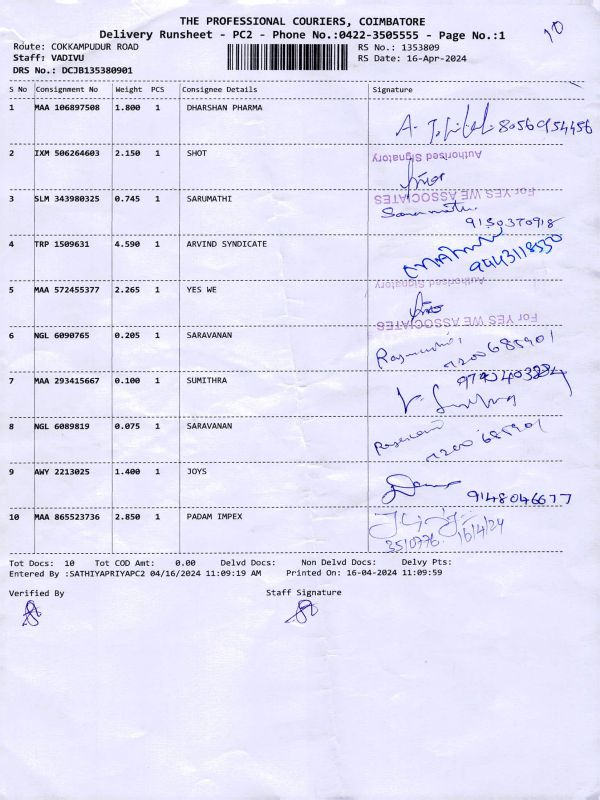 THE PROFESSIONAL COURIERS, COIMBATORE
Delivery Runsheet - PC2 - Phone No.:0422-3505555 - Page No.:1
10
Route: COKKAMPUDUR ROAD
RS No.: 1353809
Staff: VADIVU
RS Date: 16-Apr-2024
DRS No.: DCJB135380901
S No Consignment No Weight PCS Consignee Details Signature
1 MAA 106897508 1.800 1 DHARSHAN PHARMA
2 IXM 506264603 2.150 1 SHOT
Authorised Signatory
For YES WE ASSOCIATES
3 SLM 343980325 0.745 1 SARUMATHI
9150370918
4 TRP 1509631 4.590 1 ARVIND SYNDICATE
9443118530
Authorised Signatory
5 MAA 572455377 2.265 1 YES WE
For YES WE ASSOCIATES
6 NGL 6090765 0.205 1 SARAVANAN
7200685901
7 MAA 293415667 0.100 1 SUMITHRA
8 NGL 6089819 0.075 1 SARAVANAN
7200685901
9 AWY 2213025 1.400 1 JOYS
9148046677
10 MAA 865523736 2.850 1 PADAM IMPEX
3510776 16/4/24
Tot Docs: 10 Tot COD Amt: 0.00 Delvd Docs: Non Delvd Docs: Delvy Pts:
Entered By :SATHIYAPRIYAPC2 04/16/2024 11:09:19 AM Printed On: 16-04-2024 11:09:59
Verified By Staff Signature